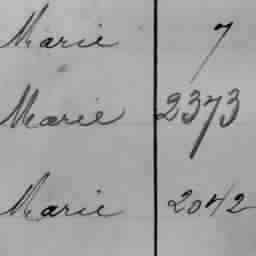 Marie 7
Marie 2373
Marie 2042